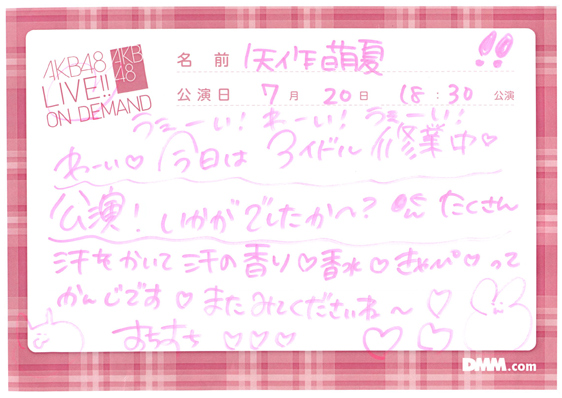 AKB48
LIVE!!
ON DEMAND
AKB
48
名前 矢作萌夏 !!
公演日 7月 20日 18:30 公演
うぇーい! わーい! うぇーい!
わーい♡ 今日は アイドル修業中♡
公演! いかがでしたかへ? たくさん
汗をかいて 汗の香り♡香水♡きゃぴ♡って
かんじです♡ またみてくださいね〜♡
すちすち ♡♡♡ ♡♡
DMM.com